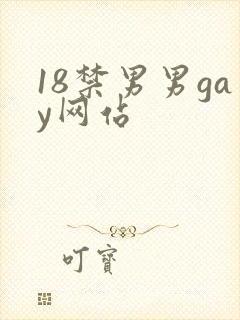 18禁男男ga
y网佔
叮寳